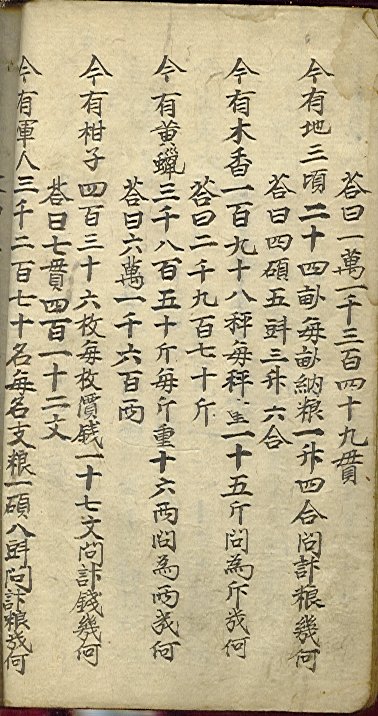 荅曰一萬一千三百四十九貫
今有地三頃二十四畝每畝納粮一升四合问計粮幾何
荅曰四碩五㪷三升六合
今有木香一百九十八秤每秤重一十五斤问為斤幾何
荅曰二千九百七十斤
今有黄蠟三千八百五十斤每斤重十六两问為两幾何
荅曰六萬一千六百两
今有柑子四百三十六枚每枚價錢一十七文问計錢幾何
荅曰七貫四百一十二文
今有軍人三千二百七十名每名支粮一碩八㪷问計粮幾何